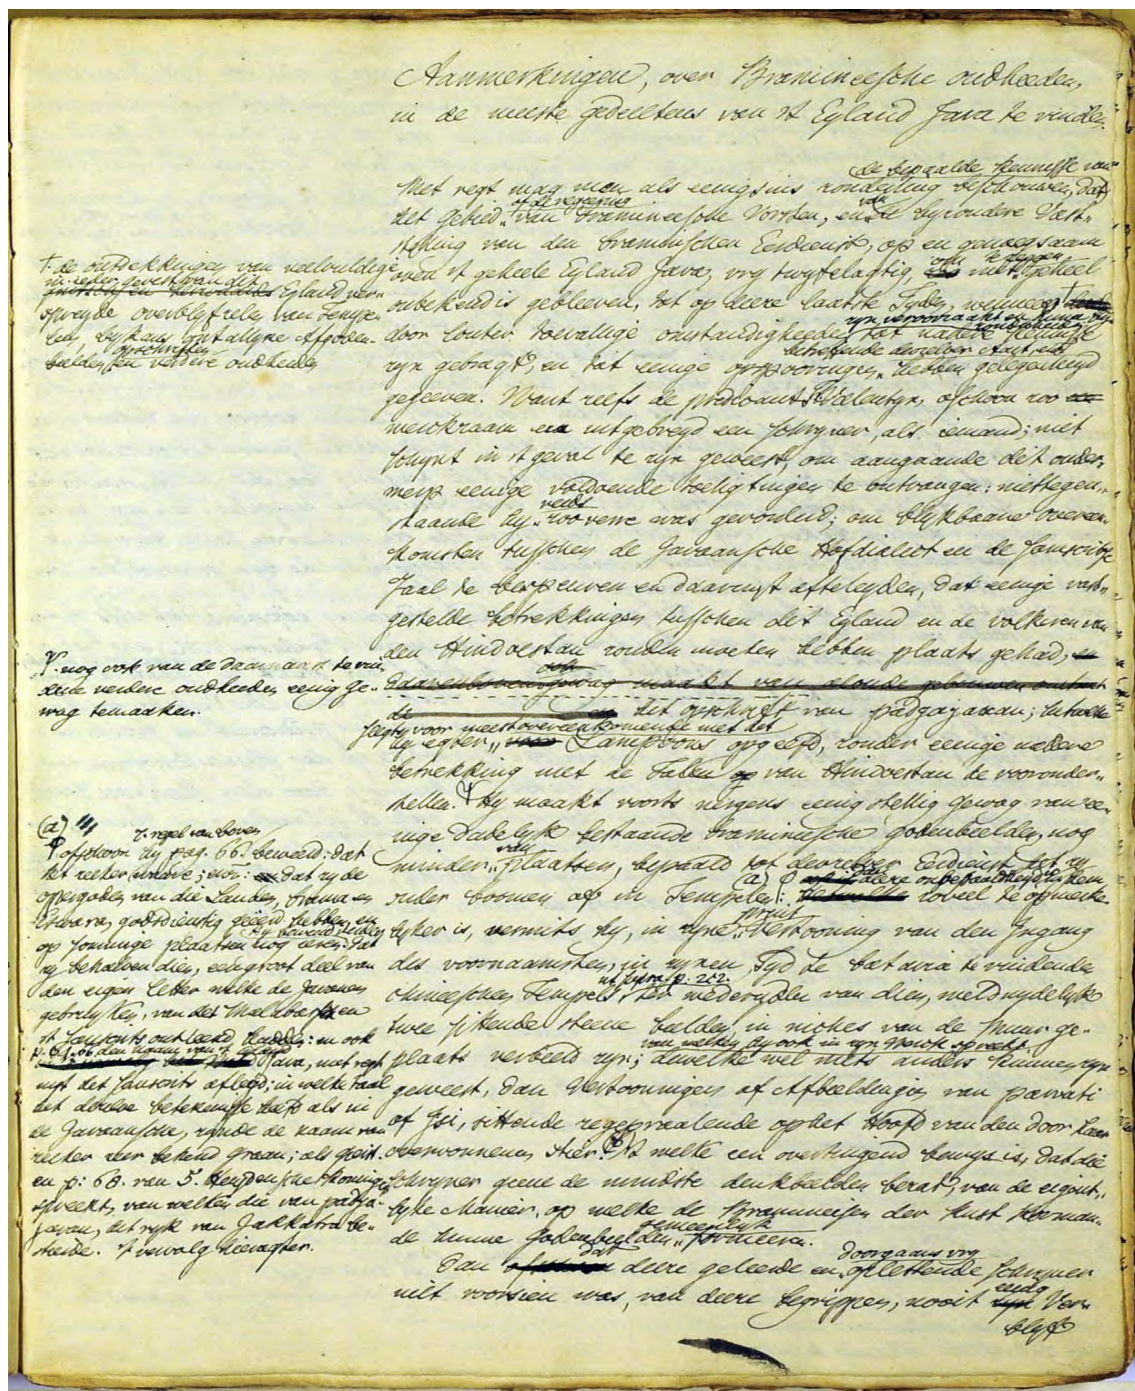 Aanmerkingen, over Bramineesche oudheeden,
in de meeste gedeeltens van 't Eyland Java te vinden.
de bepaalde kennisse van
Met regt mag men als eenigsins zonderling beschouwen, dat
of de regeering
het gebied van Bramineesche Vorsten, en de byzondere Vast-
stelling van den braminischen Eerdienst, op en genoegsaam
over 't geheele Eyland Java, vry twyfelagtig, om te zeggen niet geheel
onbekend is gebleeven, tot op deeze laatste Tyden, wanneer
door louter toevallige omstandigheeden tot nadere kennisse
betreffende derzelver
zyn gebragt, en tot eenige opspooringen hebben gelegenheyd
gegeeven. Want zelfs de predicant Valentyn, ofschoon zoo
werkzaam en uitgebreyd een schryver, als iemand; niet
schynt in 't geval te zyn geweest, om aangaande dit onder-
werp eenige voldoende toeligtingen te ontvangen: niettegen-
reeds
staande hy zoo verre was gevorderd; om blykbaare overeen-
komsten tusschen de Javaansche Hofdialect en de
Taal te bespeuren en daaruyt afteleyden, dat eenige vast-
gestelde betrekkingen tusschen dit Eyland en de volkeren van
den Hindoestan zouden moeten hebben plaats gehad, en
daarenboven gewag maakt van aloude gebouwen
dit opschrift van padjajaran; hetwelke
voor meest overeenkomende met het
hy egter Lampoons opgeeft, zonder eenige nadere
betrekking met de Talen van Hindoestan te vooronder-
stellen. Hy maakt voorts nergens eenig stellig gewag van ee-
nige dadelyk bestaande bramineesche godenbeelden, nog
van
minder plaatsen, bepaald tot derzelver Eerdienst, het zy
(a) deeze onbepaaldheyd
onder boomen of in Tempelen: zoveel te opmerke-
lyker is, vermits hy, in zyne Vertooning van den Ingang
des voornaamsten, in zynen Tyd te batavia te vindenden
ut supra p. 222.
chineeschen Tempel, ter wederzyden van dien, meldnydelyk
twee zittende steene beelden, in niches van de muur ge-
van welken hy ook in zyn Werk spreekt
plaats verbeeld zyn; dewelke wel niets anders kunnen zyn
geweest, dan Vertooningen of Afbeeldingen van parvati
of Isi, zittende zegepraalende op het Hoofd van den door haar
overwonnenen stier. 't welke een overtuigend bewys is, dat die
schryver geene de minste denkbeelden bezat, van de eigent-
lyke Manier, op welke de Bramineesen der kust Korman-
gemeenlyk
de hunne godenbeelden formeeren.
dat doorgaans vry
Dan deeze geleerde en oplettende schryver
eenig
niet voorsien was, van deeze begrippen, nooit Ver-
blyf
† de ontdekkingen van veelvuldige
in ieder gewest van dit
Eyland ver-
spreyde overblyfselen van Tempe-
len, bykans ontallyke Afgoden-
opschriften
beelden en verdere oudheeden
nog ook van de daarnaast te vin-
dene verdere oudheeden eenig ge-
wag temaaken.
(a)
7. regel van boven
ofschoon hy pag. 66. beweerd: dat
het zeeker
oppergoden van die Landen, brama en
Iswara, godsdienstig geëerd hebben, en
op sommige plaatsen nog eeren: dat
zy behalven dien, een groot deel van
den eigen letter welke de Javanen
gebruyken, van de Malabaren en
't Sanscrits ontleend hadden: en ook
p. 67. of den naam van 't Eyland
Java, met regt
uyt het Sanscrits afleyd; in welke taal
het dezelve betekenisse heeft als in
de Javaansche, zynde de naam van
zeeker zeer bekend graan; als gerst.
en p: 68. van 5. Heydensche koningen
spreekt, van welken die van padja-
jaran, het ryk van Jakkatra be-
steede. 't vervolg hieragter.